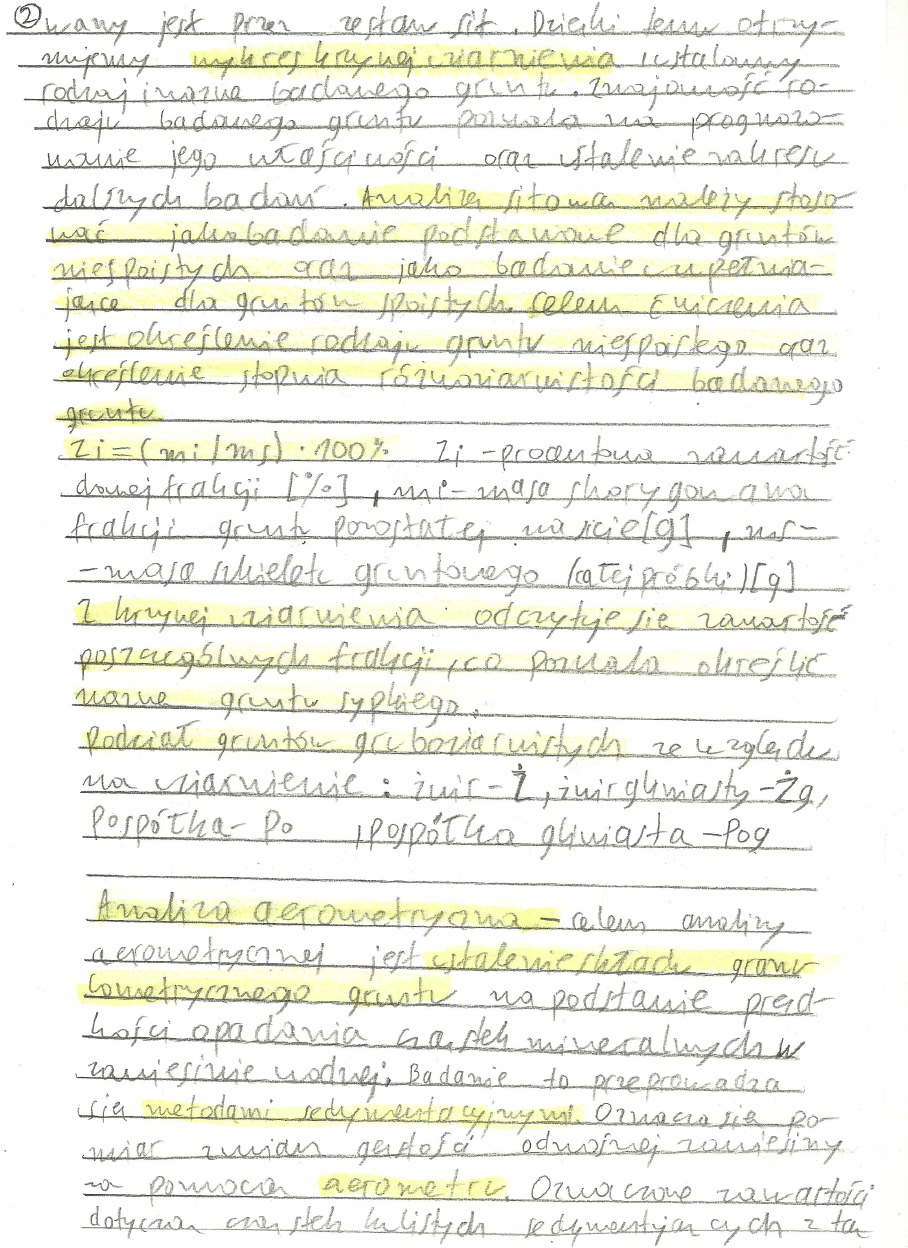 ② wany jest przez zestaw sit. Dzięki temu otrzy-
mujemy wykres krzywej ziarnienia i ustalamy
rodzaj i nazwę badanego gruntu. Znajomość ro-
dzaju badanego gruntu pozwala na prognozo-
wanie jego właściwości oraz ustalenie zakresu
dalszych badań. Analizę sitową należy stoso-
wać jako badanie podstawowe dla gruntów
niespoistych oraz jako badanie uzupełnia-
jące dla gruntów spoistych. Celem ćwiczenia
jest określenie rodzaju gruntu niespoistego oraz
określenie stopnia różnoziarnistości badanego
gruntu
Zi=(mi/ms)·100% Zi-procentowa zawartość
danej frakcji [%], mi-masa skorygowana
frakcji gruntu pozostałej na sicie[g], ms-
-masa szkieletu gruntowego (całej próbki)[g]
Z krzywej uziarnienia odczytuje się zawartość
poszczególnych frakcji, co pozwala określić
nazwę gruntu sypkiego.
Podział gruntów gruboziarnistych ze względu
na uziarnienie: żwir-Ż, żwir gliniasty-Żg,
Pospółka-Po, pospółka gliniasta-Pog
Analiza aerometryczna - celem analizy
aerometrycznej jest ustalenie składu granu-
lometrycznego gruntu na podstawie pręd-
kości opadania cząstek mineralnych w
zawiesinie wodnej. Badanie to przeprowadza
się metodami sedymentacyjnymi. Oznacza się po-
miar zmian gęstości odwojnej zawiesiny
za pomocą aerometru. Oznaczone zawartości
dotyczą cząstek kulistych sedymentujących z tą